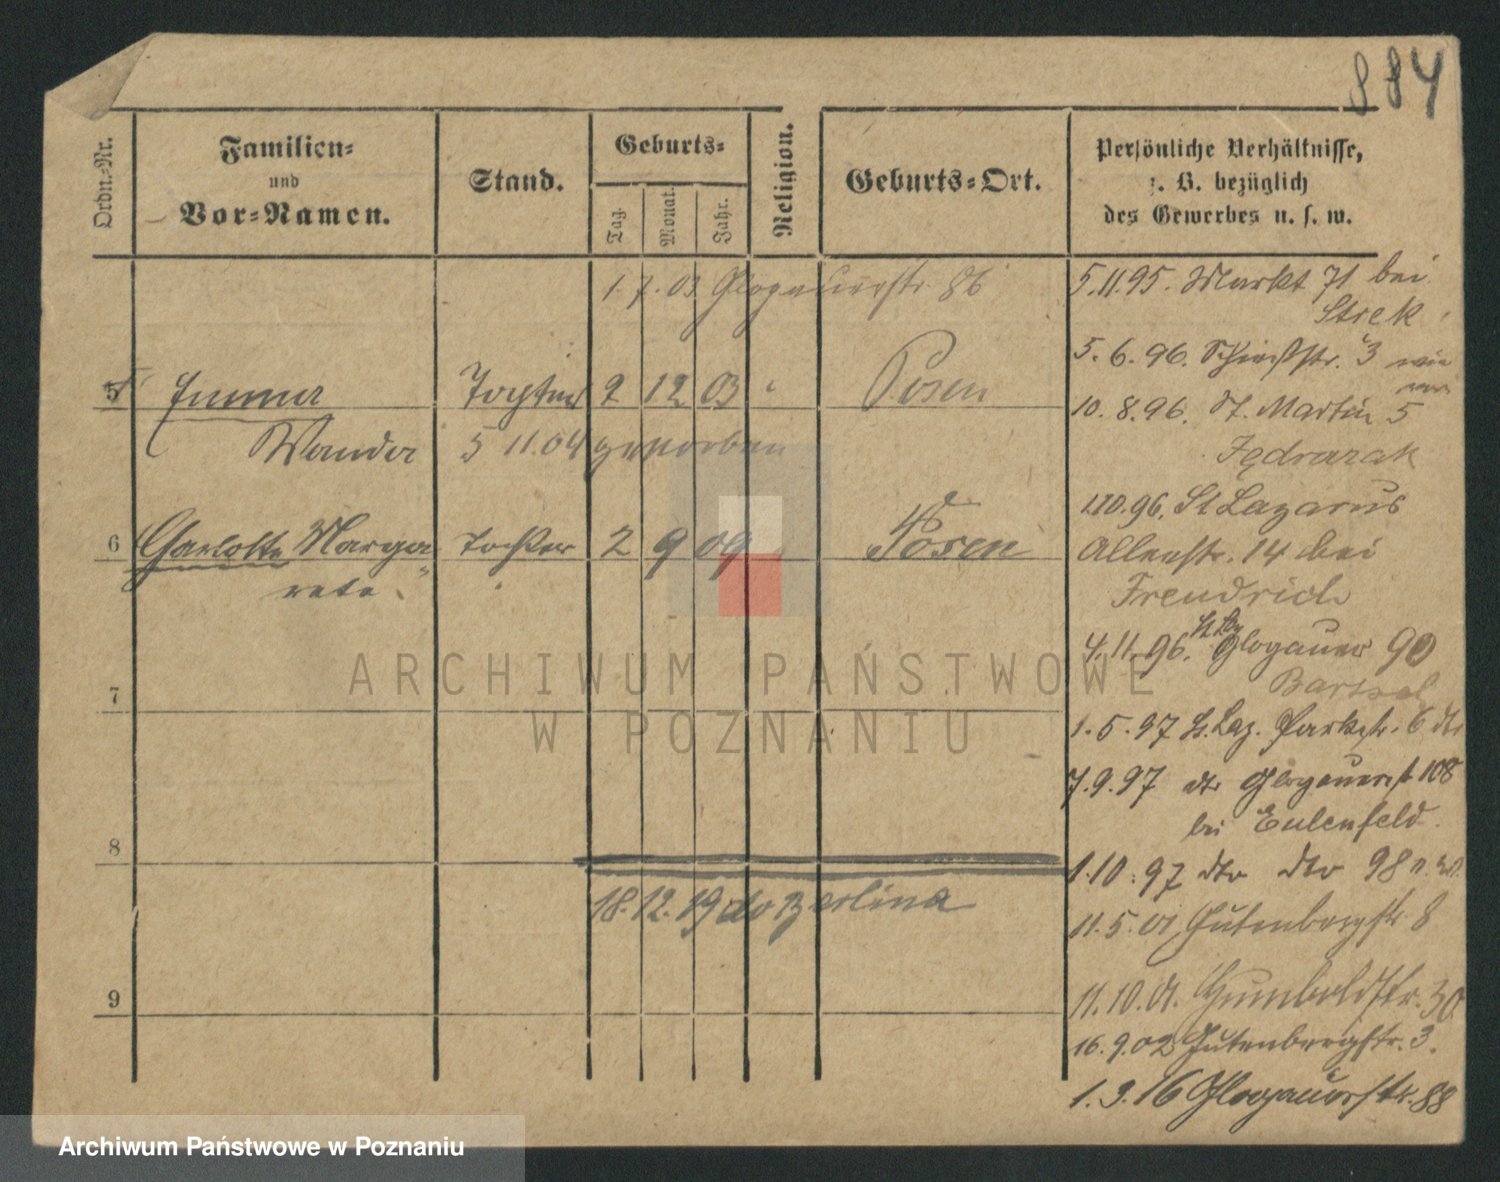 884
Ordn.-Nr.
Familien-
und
Vor-Namen.
Stand.
Geburts-
Tag.
Monat.
Jahr.
Religion.
Geburts-Ort.
Persönliche Verhältnisse,
z. B. bezüglich
des Gewerbes u. s. w.
1.7.03 Glogauerstr 86
5 Emma Tochter 2 12 03 " Posen
Wanda 5 11.04 gestorben
6 Charlotte Marga Tochter 2 9 09 Posen
rete.
7
8
18.12.19 do Berlina
9
5.11.95. Markt 71 bei
Strek
5.6.96. Schießstr. 3
10.8.96. St. Martin 5
Jędraszak
1.10.96. St Lazarus
Allerstr. 14 bei
Freudrich
4.11.96. St Laz Glogauer 90
Bartsch
1.5.97 St. Laz. Parkstr. 6 dto
7.9.97 dto Glogauerst 108
bei Eulenfeld.
1.10.97 dto dto 98
11.5.01 Gutenbergstr. 8
11.10.01. Humboldtstr. 30
16.9.02 Gutenbergstr. 3.
1.3.16 Glogauerstr. 88
ARCHIWUM PAŃSTWOWE
W POZNANIU
Archiwum Państwowe w Poznaniu